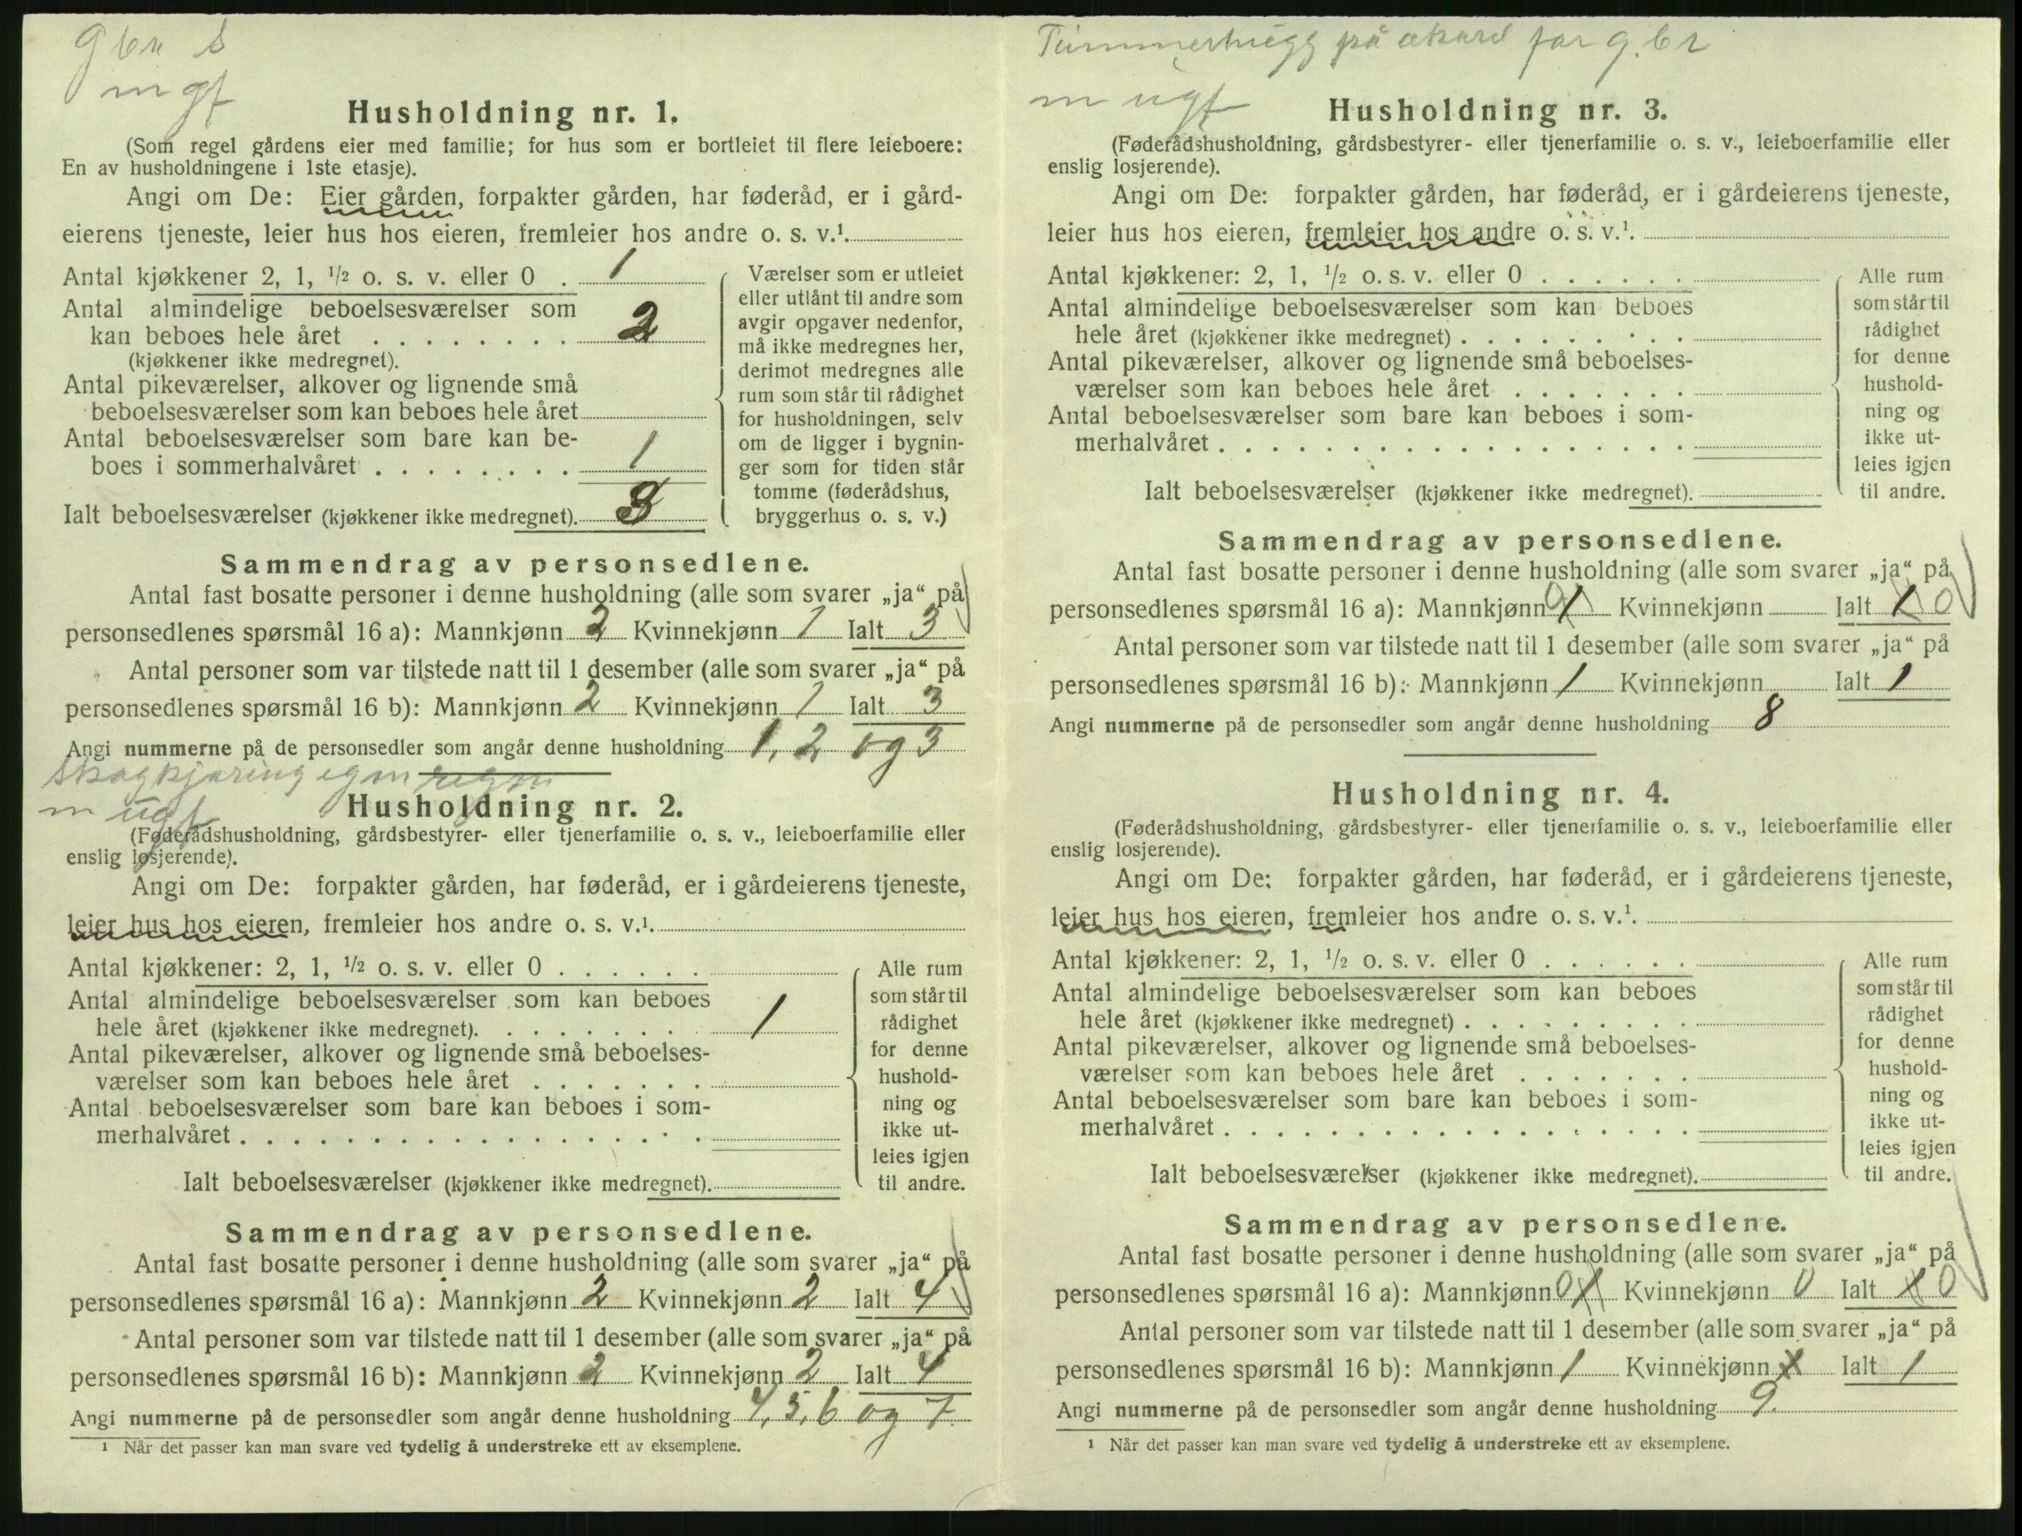 gbr s
m gf
Husholdning nr. 1.
(Som regel gårdens eier med familie; for hus som er bortleiet til flere leieboere:
En av husholdningene i 1ste etasje).
Angi om De: Eier gården, forpakter gården, har føderåd, er i gård-
eierens tjeneste, leier hus hos eieren, fremleier hos andre o. s. v.¹.
Antal kjøkkener 2, 1, ½ o. s. v. eller 0 . 1
Antal almindelige beboelsesværelser som
kan beboes hele året . . . . . . . . 2
(kjøkkener ikke medregnet).
Antal pikeværelser, alkover og lignende små
beboelsesværelser som kan beboes hele året
Antal beboelsesværelser som bare kan be-
boes i sommerhalvåret . . . . . . . . 1
Ialt beboelsesværelser (kjøkkener ikke medregnet). 3
Værelser som er utleiet
eller utlånt til andre som
avgir opgaver nedenfor,
må ikke medregnes her,
derimot medregnes alle
rum som står til rådighet
for husholdningen, selv
om de ligger i bygnin-
ger som for tiden står
tomme (føderådshus,
bryggerhus o. s. v.)
Sammendrag av personsedlene.
Antal fast bosatte personer i denne husholdning (alle som svarer „ja“ på
personsedlenes spørsmål 16 a): Mannkjønn 2 Kvinnekjønn 1 Ialt 3
Antal personer som var tilstede natt til 1 desember (alle som svarer „ja“ på
personsedlenes spørsmål 16 b): Mannkjønn 2 Kvinnekjønn 1 Ialt 3
Angi nummerne på de personsedler som angår denne husholdning 1, 2 og 3
Skogkjøring egen regn
m ugf
Husholdning nr. 2.
(Føderådshusholdning, gårdsbestyrer- eller tjenerfamilie o. s. v., leieboerfamilie eller
enslig losjerende).
Angi om De: forpakter gården, har føderåd, er i gårdeierens tjeneste,
leier hus hos eieren, fremleier hos andre o. s. v.¹.
Antal kjøkkener: 2, 1, ½ o. s. v. eller 0 . . . . . .
Antal almindelige beboelsesværelser som kan beboes
hele året (kjøkkener ikke medregnet). . . . . . . . 1
Antal pikeværelser, alkover og lignende små beboelses-
værelser som kan beboes hele året . . . . . . .
Antal beboelsesværelser som bare kan beboes i som-
merhalvåret . . . . . . . . . . . . . . . . . .
Ialt beboelsesværelser (kjøkkener ikke medregnet).
Alle rum
som står til
rådighet
for denne
hushold-
ning og
ikke ut-
leies igjen
til andre.
Sammendrag av personsedlene.
Antal fast bosatte personer i denne husholdning (alle som svarer „ja“ på
personsedlenes spørsmål 16 a): Mannkjønn 2 Kvinnekjønn 2 Ialt 4
Antal personer som var tilstede natt til 1 desember (alle som svarer „ja“ på
personsedlenes spørsmål 16 b): Mannkjønn 2 Kvinnekjønn 2 Ialt 4
Angi nummerne på de personsedler som angår denne husholdning 4, 5, 6 og 7
¹ Når det passer kan man svare ved tydelig å understreke ett av eksemplene.
Tømmerhugg på akord for g.br
m ugf
Husholdning nr. 3.
(Føderådshusholdning, gårdsbestyrer- eller tjenerfamilie o. s. v., leieboerfamilie eller
enslig losjerende).
Angi om De: forpakter gården, har føderåd, er i gårdeierens tjeneste,
leier hus hos eieren, fremleier hos andre o. s. v.¹.
Antal kjøkkener: 2, 1, ½ o. s. v. eller 0 . . . . . .
Antal almindelige beboelsesværelser som kan beboes
hele året (kjøkkener ikke medregnet) . . . . . . . . .
Antal pikeværelser, alkover og lignende små beboelses-
værelser som kan beboes hele året . . . . . . .
Antal beboelsesværelser som bare kan beboes i som-
merhalvåret . . . . . . . . . . . . . . . . . .
Ialt beboelsesværelser (kjøkkener ikke medregnet).
Alle rum
som står til
rådighet
for denne
hushold-
ning og
ikke ut-
leies igjen
til andre.
Sammendrag av personsedlene.
Antal fast bosatte personer i denne husholdning (alle som svarer „ja“ på
personsedlenes spørsmål 16 a): Mannkjønn 0 1 Kvinnekjønn Ialt 1 0
Antal personer som var tilstede natt til 1 desember (alle som svarer „ja“ på
personsedlenes spørsmål 16 b): Mannkjønn 1 Kvinnekjønn Ialt 1
Angi nummerne på de personsedler som angår denne husholdning 8
Husholdning nr. 4.
(Føderådshusholdning, gårdsbestyrer- eller tjenerfamilie o. s. v., leieboerfamilie eller
enslig losjerende).
Angi om De: forpakter gården, har føderåd, er i gårdeierens tjeneste,
leier hus hos eieren, fremleier hos andre o. s. v.¹.
Antal kjøkkener: 2, 1, ½ o. s. v. eller 0 . . . . . .
Antal almindelige beboelsesværelser som kan beboes
hele året (kjøkkener ikke medregnet) . . . . . . . . .
Antal pikeværelser, alkover og lignende små beboelses-
værelser som kan beboes hele året . . . . . . .
Antal beboelsesværelser som bare kan beboes i som-
merhalvåret . . . . . . . . . . . . . . . . . .
Ialt beboelsesværelser (kjøkkener ikke medregnet).
Alle rum
som står til
rådighet
for denne
hushold-
ning og
ikke ut-
leies igjen
til andre.
Sammendrag av personsedlene.
Antal fast bosatte personer i denne husholdning (alle som svarer „ja“ på
personsedlenes spørsmål 16 a): Mannkjønn 0 1 Kvinnekjønn 0 Ialt 1 0
Antal personer som var tilstede natt til 1 desember (alle som svarer „ja“ på
personsedlenes spørsmål 16 b): Mannkjønn 1 Kvinnekjønn 1 Ialt 1
Angi nummerne på de personsedler som angår denne husholdning 9.
¹ Når det passer kan man svare ved tydelig å understreke ett av eksemplene.